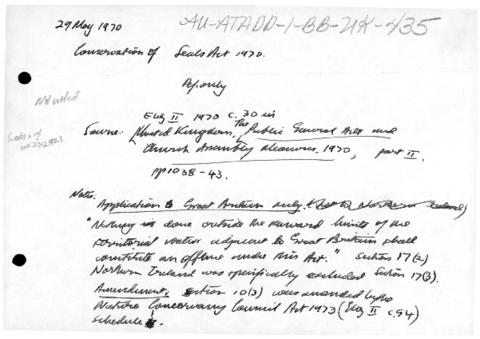 29 May 1970 AU-ATADD-1-BB-UK-435
Conservation of Seals Act 1970.
Rep. only
Not noted
Eliz II 1970 c. 30 in
Source: United Kingdom, The Public General Acts and
Church Assembly Measures 1970, part II,
pp 1038-43.
Notes: Application to Great Britain only.
"Nothing done outside the seaward limits of the
territorial waters adjacent to Great Britain shall
constitute an offence under this Act." Section 17(2)
Northern Ireland was specifically excluded Section 17(3).
Amendment. Section 10(3) was amended by the
Nature Conservancy Council Act 1973 (Eliz II c.54)
schedule 1.